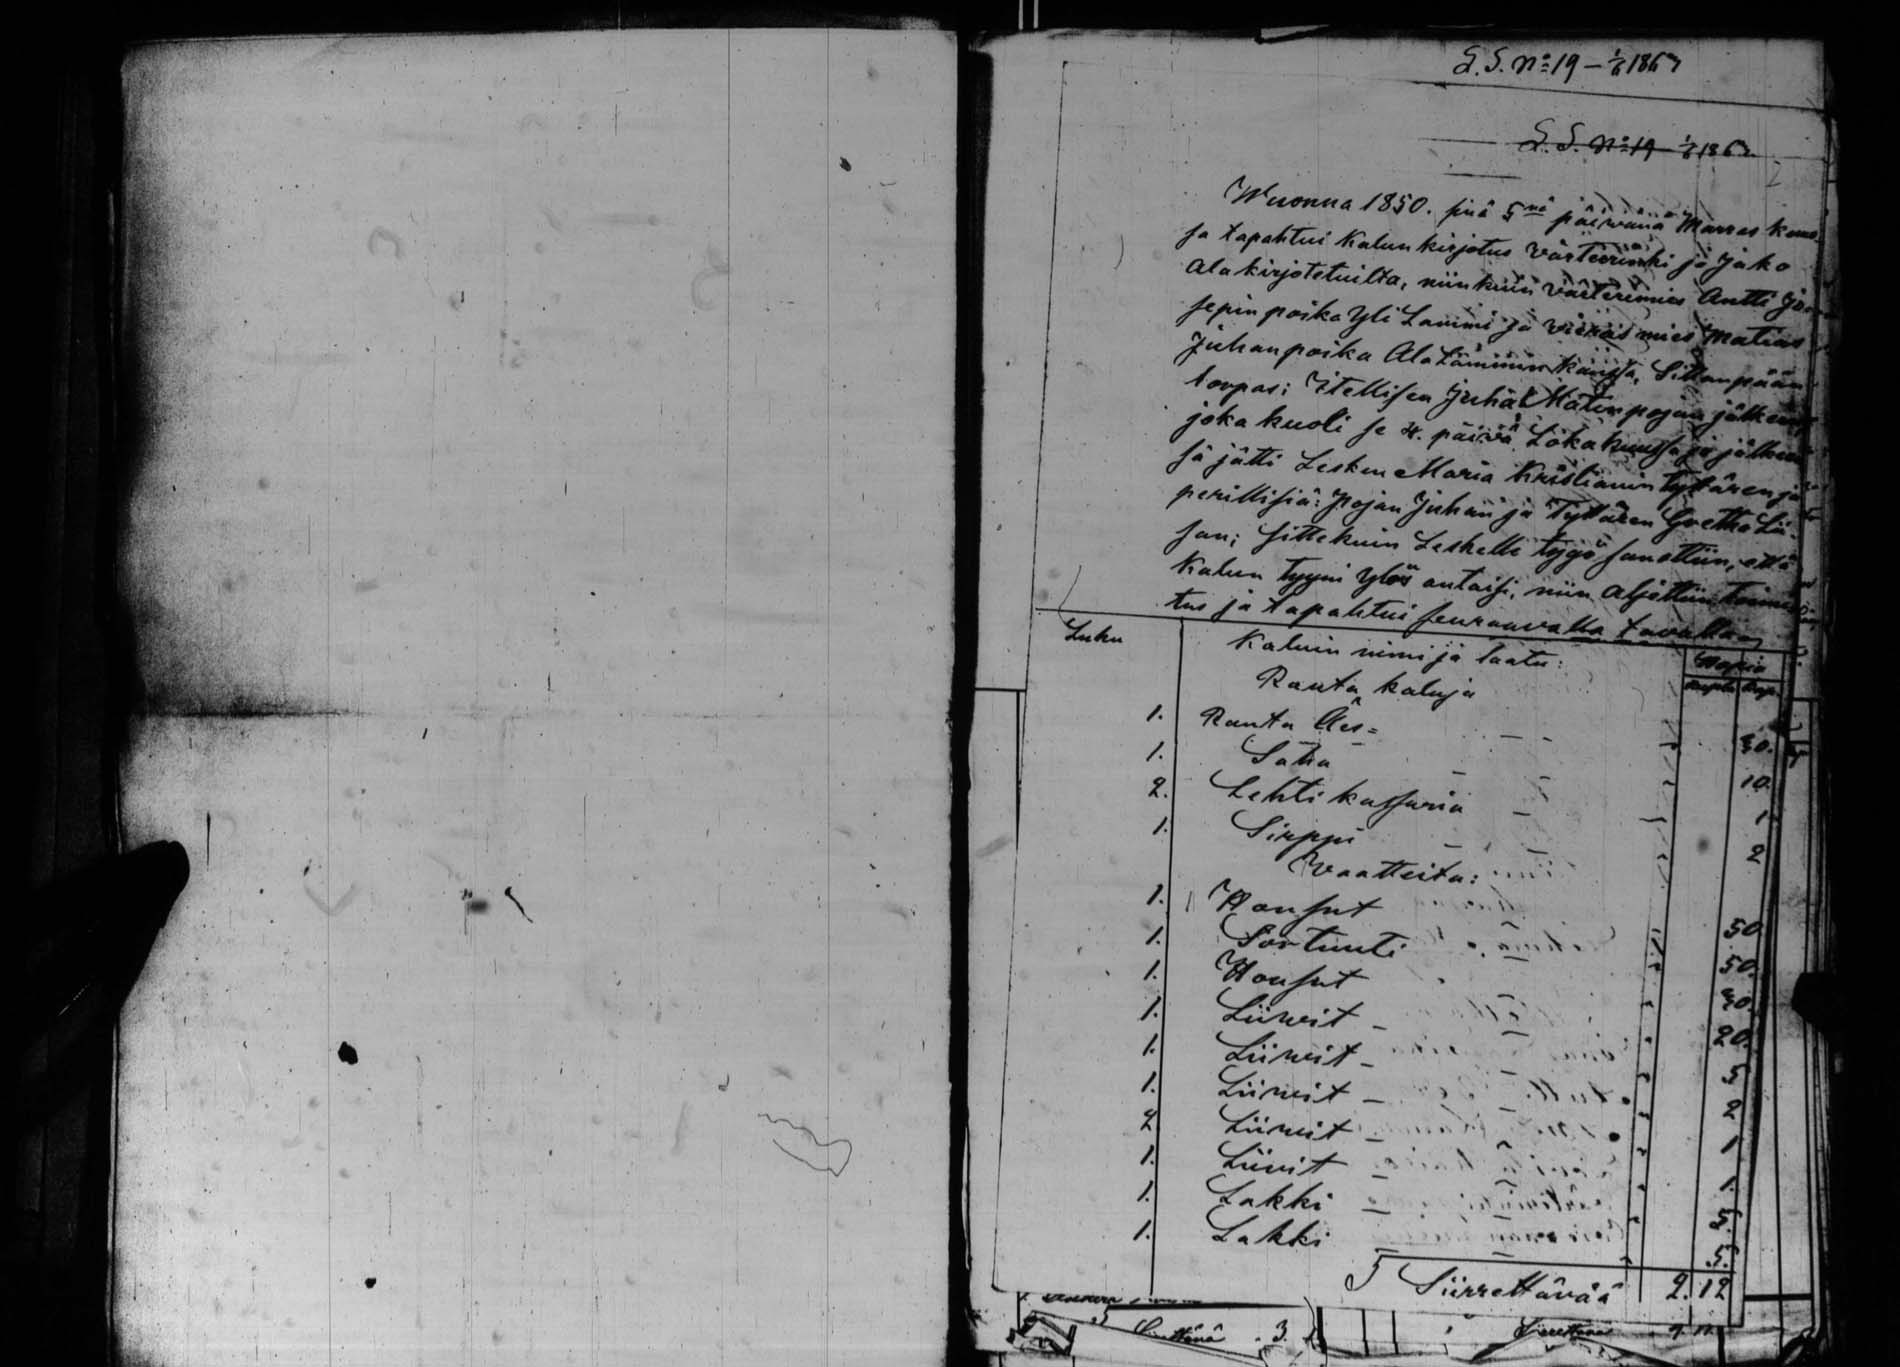 L. S. No 19 – 1/6 1867
L. S. No 19 1/6 1867
Wuonna 1850. sinä 5nä päiwänä Marras kuus
sa tapahtui Kalun kirjotus värteerinki ja Jako
Ala kirjotetuilta, niin kuin värterimies Antti Jo-
sepin poika Yli Lammi ja vieras mies Matias
Juhan poika Ala Lammin kanssa, Sillanpään
torpas; Itellisen Juha Matin pojan jälken
joka kuoli se 4. päivä Lokakuussa ja jälken
sä jätti Lesken Maria Kristianin tyttären ja
perillisiä: Pojan Juhan ja Tyttären Gretha Lii-
san; sittekuin Leskelle tygö sanottiin, että
Kalun tyyni ylös antaisi, niin aljettiin toimi
tus ja tapahtui seuraavalla tavalla
Luku Kaluin nimi ja laatu: Hopia
Rauta kaluja Rupla Kop.
1. Rauta Äes= 30.
1. Saha 10.
2. Lehti kassaria 1
1. Sirppi 2
Vaatteita:
1. Housut 50
1. Sortuuti 50.
1. Housut 30.
1. Liiwit 20.
1. Liiwit 5
1. Liiwit 2
2 Liiwit 1
1. Liiwit 1.
1. Lakki 5.
1. Lakki 5.
Siirrettävää 2. 12
Siirrettävä 3.